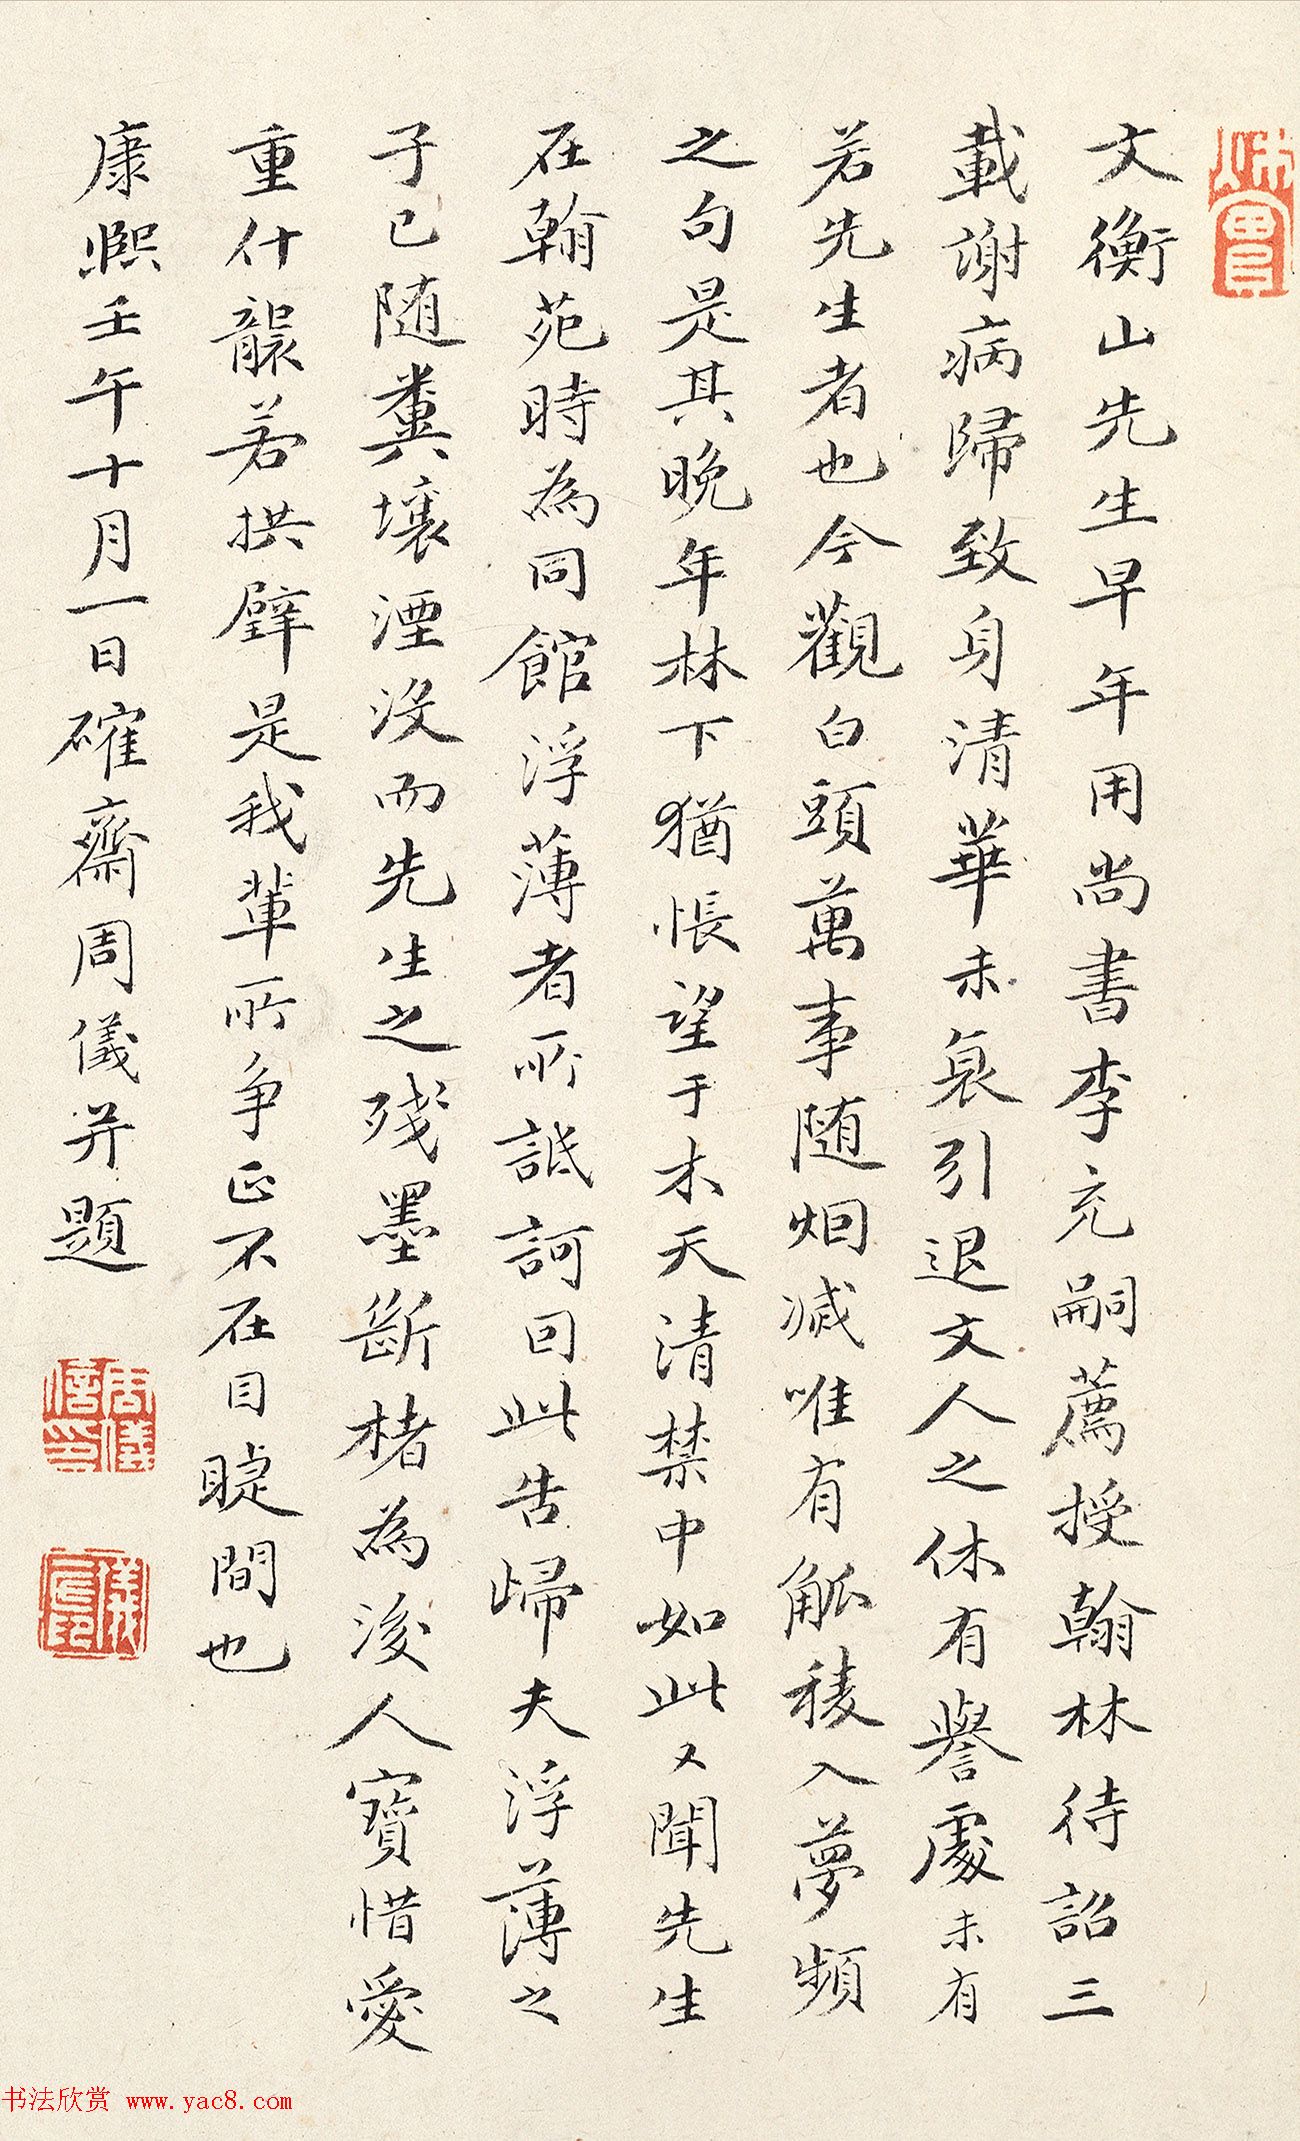 文衡山先生早年用尚書李充嗣薦授翰林待詔三
載謝病歸致身清華未衰引退文人之休有譽處未有
若先生者也今觀白頭萬事随烟滅唯有觚稜入夢頻
之句是其晚年林下猶悵望于木天清禁中如此又聞先生
在翰苑時為同館浮薄者所詆訶回此告歸夫浮薄之
子已随糞壤湮沒而先生之殘墨斷楮為後人寶惜愛
重什襲若拱璧是我輩所争正不在目睫間也
康熙壬午十月一日確齋周儀并題
周儀
书法欣赏 www.yac8.com